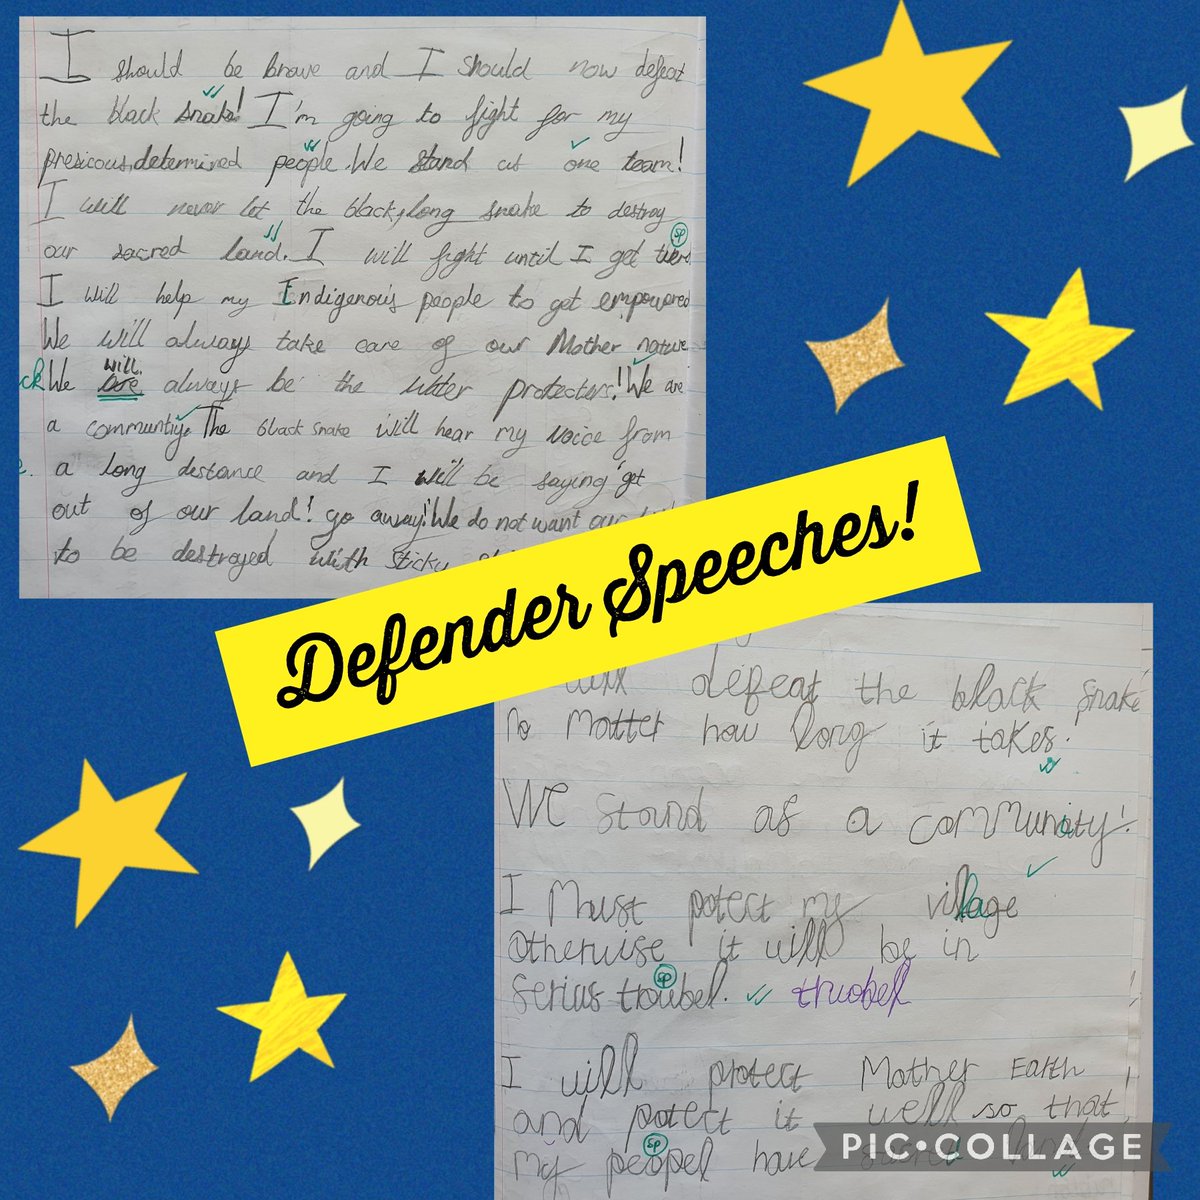 I should be brave and I should now defeat
the black snake! I'm going to fight for my
presicous,determined people.We stand as one team!
I will never let the black,long snake to destroy
our sacred land. I will fight until I get
sp
I will help my Indigenous people to get empowered
We will always take care of our Mother nature
will
We are always be the water protectors! We are
a community. The black snake will hear my voice from
a long distance and I will be saying 'get
out of our land! go away! We do not want our
to be destroyed with sticky
Defender Speeches!
will defeat the black snake
no matter how long it takes.
We stand as a community!
I must potect my village
otherwise it will be in
sp
serius troubel. truobel
I will protect Mother Earth
and potect it well so that
sp
my peopel have sacred
PIC•COLLAGE